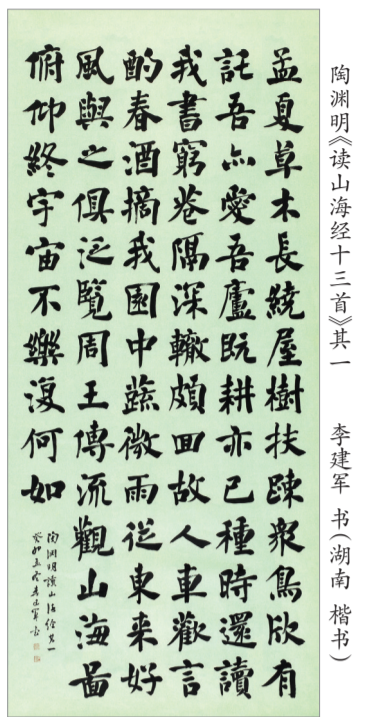 陶渊明《读山海经十三首》其一 李建军 书(湖南 楷书)
孟夏草木長繞屋樹扶踈衆鳥欣有
託吾亦愛吾廬既耕亦已種時還讀
我書窮巷隔深轍頗回故人車歡言
酌春酒摘我園中蔬微雨從東来好
風與之俱泛覽周王傳流觀山海圖
俯仰終宇宙不樂復何如
陶渊明讀山海經其一
癸卯冬李建軍書